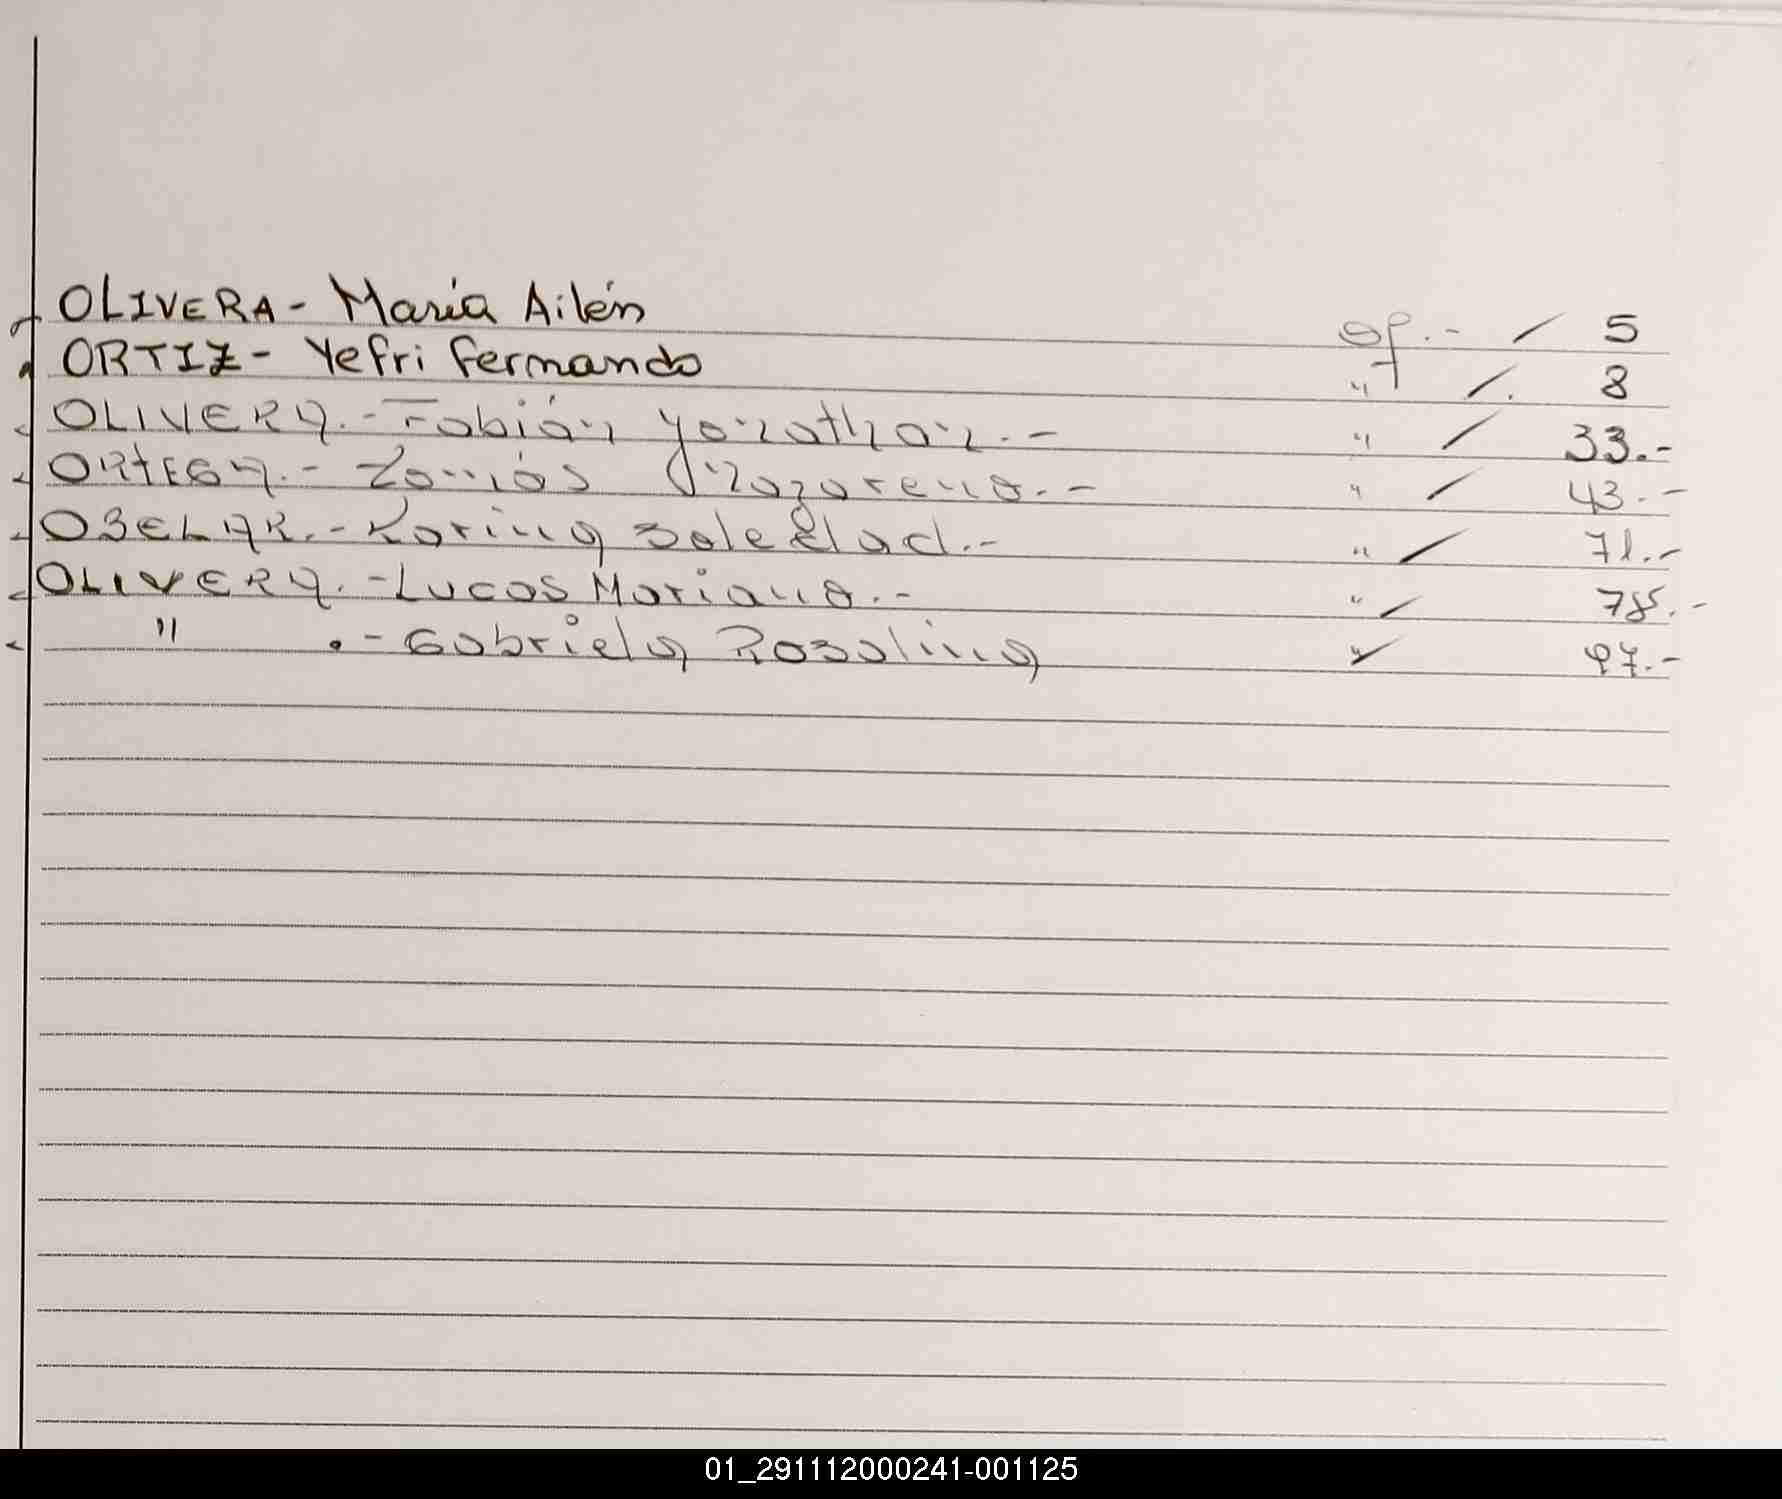 OLIVERA - María Ailén of.- / 5
ORTIZ - Yefri Fernando " /. 8
OLIVERA.- Fabián Yonathan.- " / 33.-
ORTEGA.- Tomás Nazareno.- " / 43.-
OBELAR.- Karina Soledad.- " / 71.-
OLIVERA.- Lucas Mariano.- " / 78.-
" .- Gabriela Rosalina " 97.-
01_291112000241-001125